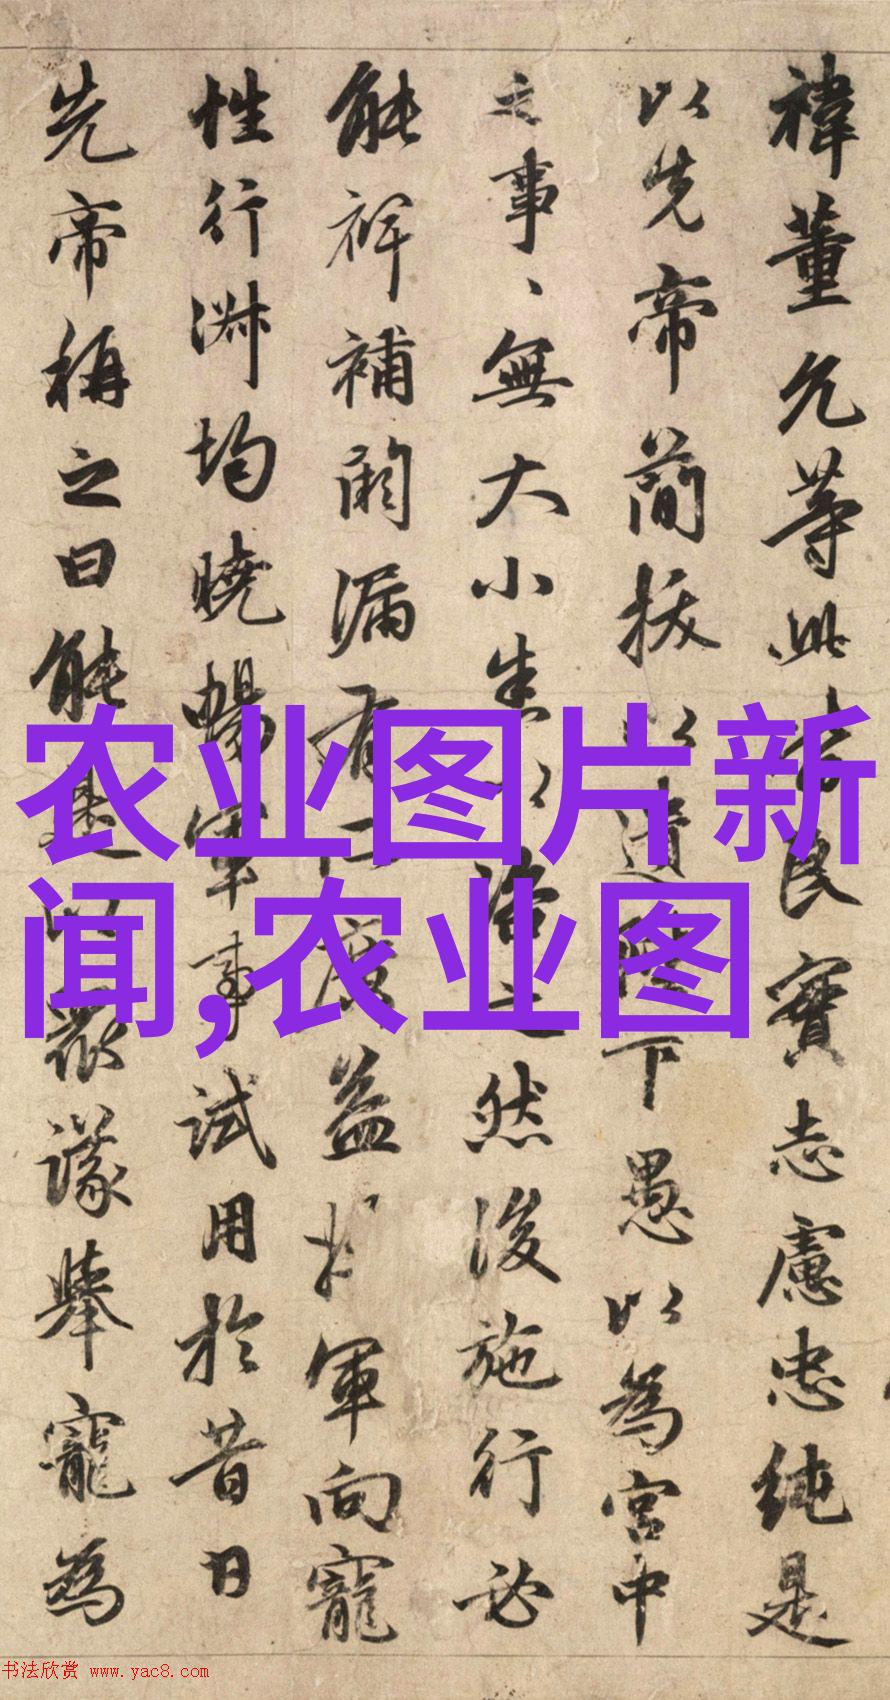 禕董允等此皆良實志慮忠純是
以先帝簡拔以遺陛下愚以為宮中
之事、無大小悉以咨之然後施行必
能裨補闕漏有所廣益將軍向寵
性行淑均曉暢軍事試用於昔日
先帝稱之曰能是以眾議舉寵為
农业图片新
闻,农业图
书法欣赏 www.yac8.com